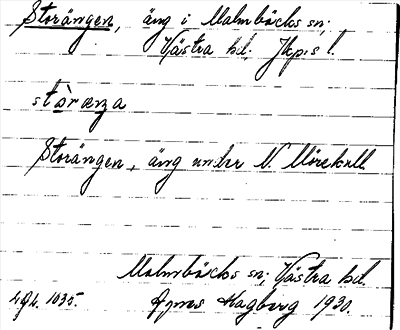 Storängen, äng i Malmbäcks sn;
Västra hd; Jkp:s l.
stòræŋa
Storängen, äng under N. Mörekull.
Malmbäcks sn; Västra hd.
Lgh. 1035. Agnes Hagberg 1930.